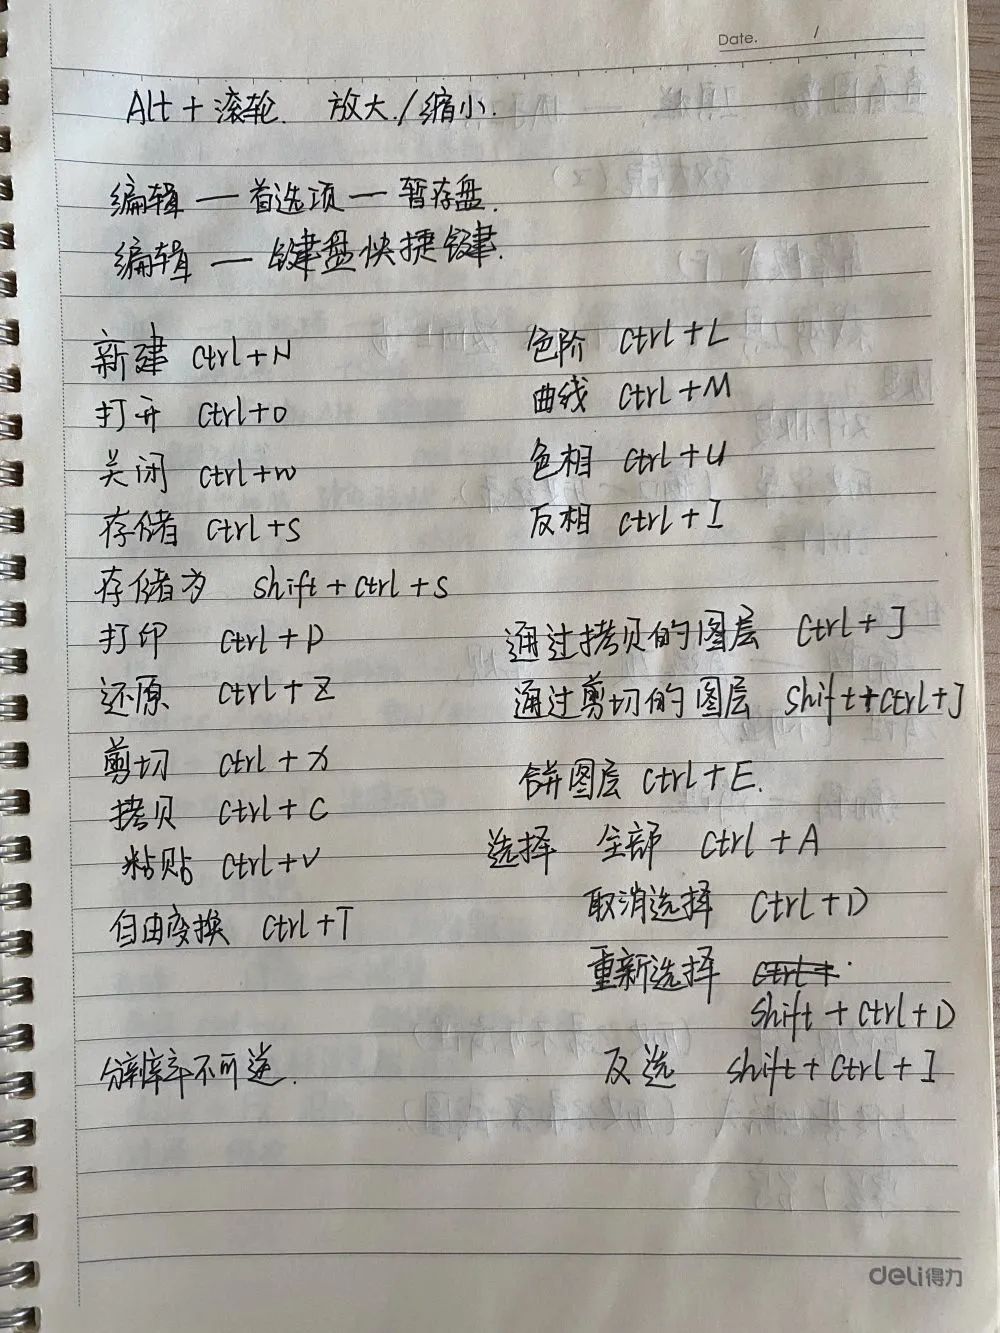 Date. /
Alt + 滚轮. 放大/缩小.
编辑 — 首选项 — 暂存盘.
编辑 — 键盘快捷键.
新建 ctrl+N
打开 ctrl+o
关闭 ctrl+w
存储 ctrl+s
存储为 shift+ctrl+s
打印 ctrl+P
还原 ctrl+Z
剪切 ctrl+x
拷贝 ctrl+C
粘贴 ctrl+v
自由变换 ctrl+T
分辨率不可逆.
色阶 ctrl+L
曲线 ctrl+M
色相 ctrl+U
反相 ctrl+I
通过拷贝的图层 ctrl+J
通过剪切的图层 shift+ctrl+J
饼图层 ctrl+E.
选择 全部 ctrl+A
取消选择 ctrl+D
重新选择 ctrl+
shift+ctrl+D
反选 shift+ctrl+I
deli得力